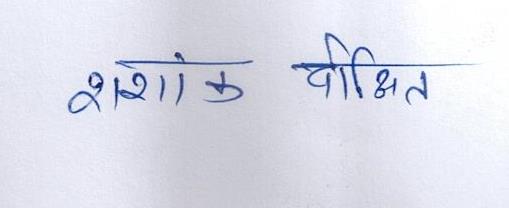 शशांक दीक्षित